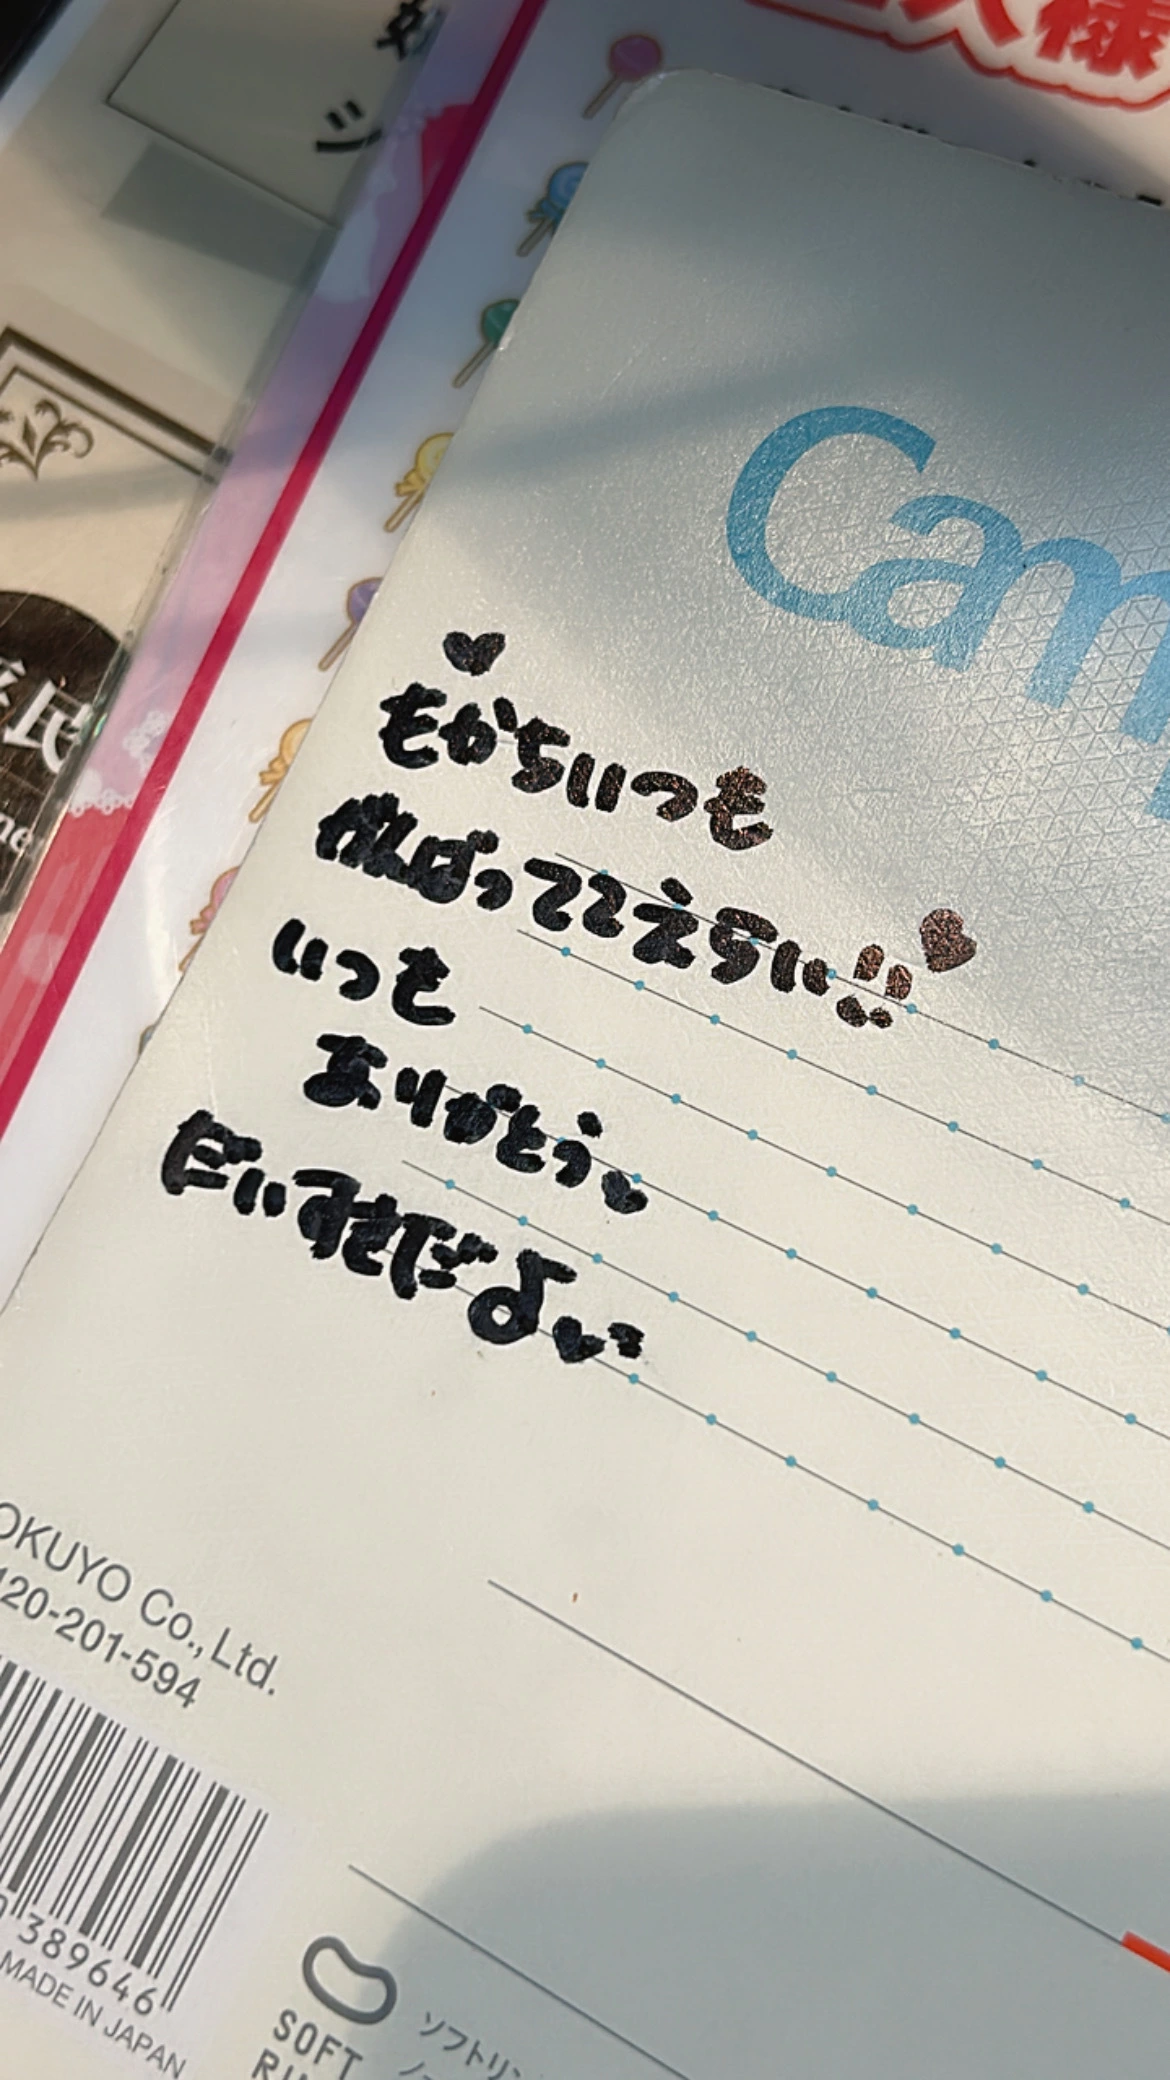 人様
ジ
Cam
もかちいつも
がんばっててえらい!!
いつも
ありがとう
だいすきだよ
OKUYO Co., Ltd.
120-201-594
389646
MADE IN JAPAN
SOFT
ソフトリン
ノー